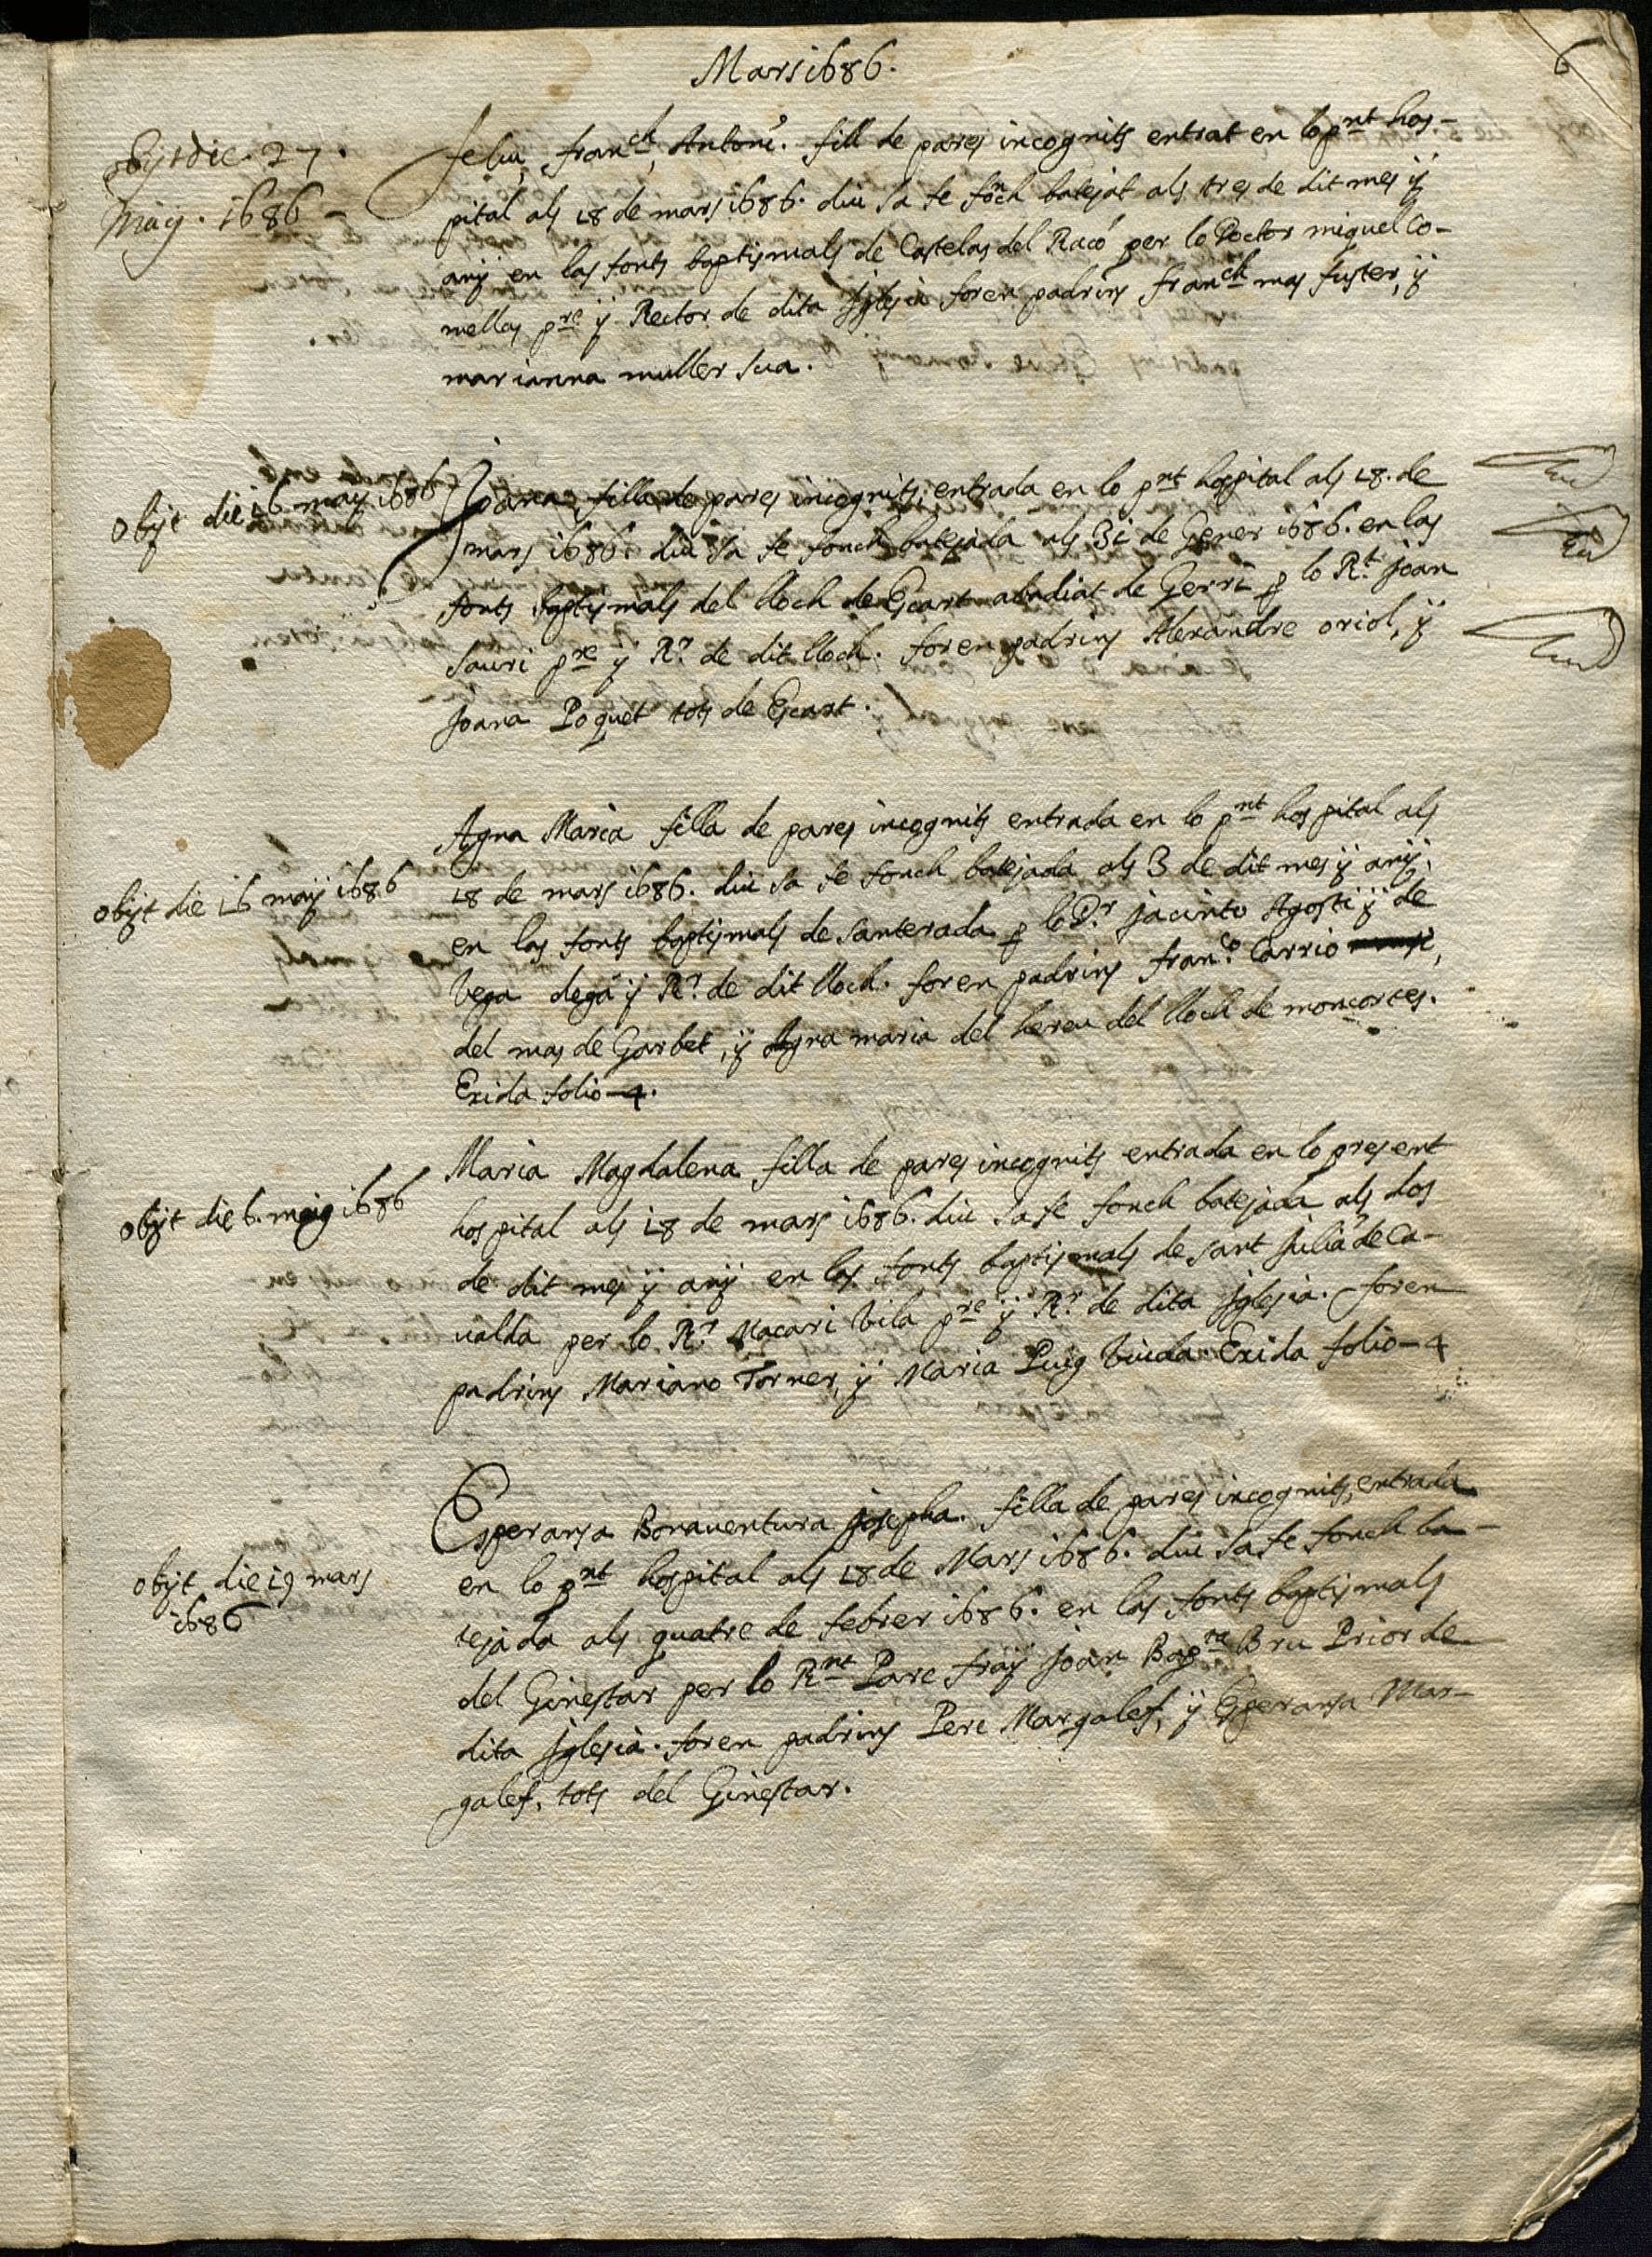 Mars 1686.
6
Obijt die. 27.
Maij. 1686 -
feliu, fran.ch, Antoni. fill de pares incognits entrat en lo pnt hos-
pital als 18 de mars 1686. diu sa fe fonch batejat als tres de dit mes ÿ
anÿ en las fonts baptismals de Castelas del Racó per lo Doctor miquel Co-
mellas pre ÿ Rector de dita Jglesia foren padrins fran.ch mas fuster, ÿ
marianna muller sua.
Obijt die 16 maÿ 1686
Joana, filla de pares incognits, entrada en lo pnt hospital als 18. de
mars 1686. diu sa fe fonch batejada als 31 de Gener 1686. en las
fonts baptismals del lloch de Escart abadiat de Gerri p lo Rt. Joan
Sauri pre ÿ Rr. de dit lloch. foren padrins Alexandre oriol, ÿ
Joana Poquet tots de Escart.
obijt die 16 maij 1686
Agna Maria filla de pares incognits entrada en lo pnt hospital als
18 de mars 1686. diu sa fe fonch batejada als 3 de dit mes ÿ anÿ,
en las fonts baptismals de santerada p lo Dr. Jacinto Agosti ÿ de
Vega degá ÿ Rr. de dit lloch. foren padrins fran.co Carrio
del mas de Garbet, ÿ Agna maria del hereu del lloch de moncortes.
Exida folio - 4.
obijt die 6. maig 1686
Maria Magdalena filla de pares incognits entrada en lo present
hospital als 18 de mars 1686. diu sa fe fonch batejada als dos
de dit mes ÿ anÿ en las fonts baptismals de sant Juliá de Ca-
ualda per lo Rr. Macari Vila pre ÿ Rr. de dita Jglesia. foren
padrins Mariano Torner, ÿ Maria Puig Viuda. Exida folio - 4
obijt die 19 mars
1686
Esperansa Bonauentura Josepha. filla de pares incognits, entrada
en lo pnt hospital als 18 de Mars 1686. diu sa fe fonch ba-
tejada als quatre de febrer 1686. en las fonts baptismals
del Ginestar per lo Rnt Pare fraÿ Joan Bapta Bru Prior de
dita Jglesia. foren padrins Pere Margalef, ÿ Esperansa Mar-
galef, tots del Ginestar.